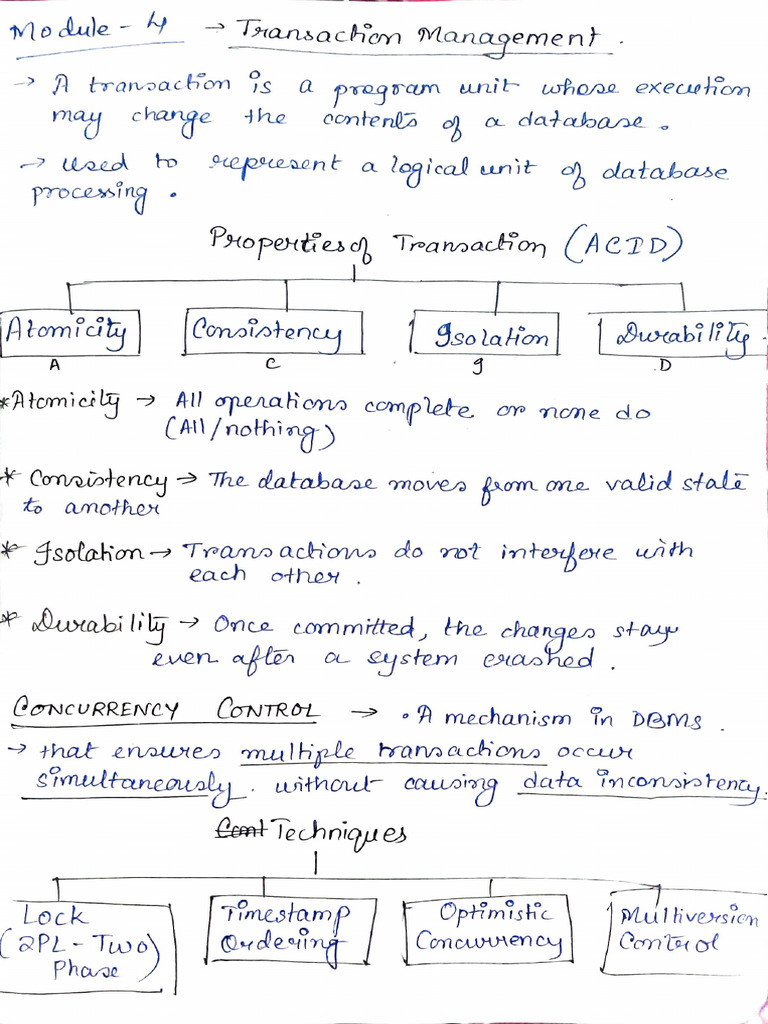 Module - 4 → Transaction Management.
→ A transaction is a program unit whose execution
may change the contents of a database.
→ used to represent a logical unit of database
processing.
Properties of Transaction (ACID)
Atomicity Consistency Isolation Durability
A C I D
*Atomicity → All operations complete or none do
(All/nothing)
* Consistency → The database moves from one valid state
to another
* Isolation → Transactions do not interfere with
each other.
* Durability → Once committed, the changes stay
even after a system crashed.
CONCURRENCY CONTROL → • A mechanism in DBMS.
→ that ensures multiple transactions occur
simultaneously. without causing data inconsistency.
Cont Techniques
Lock Timestamp Optimistic Multiversion
(2PL - Two Ordering Concurrency Control
Phase)